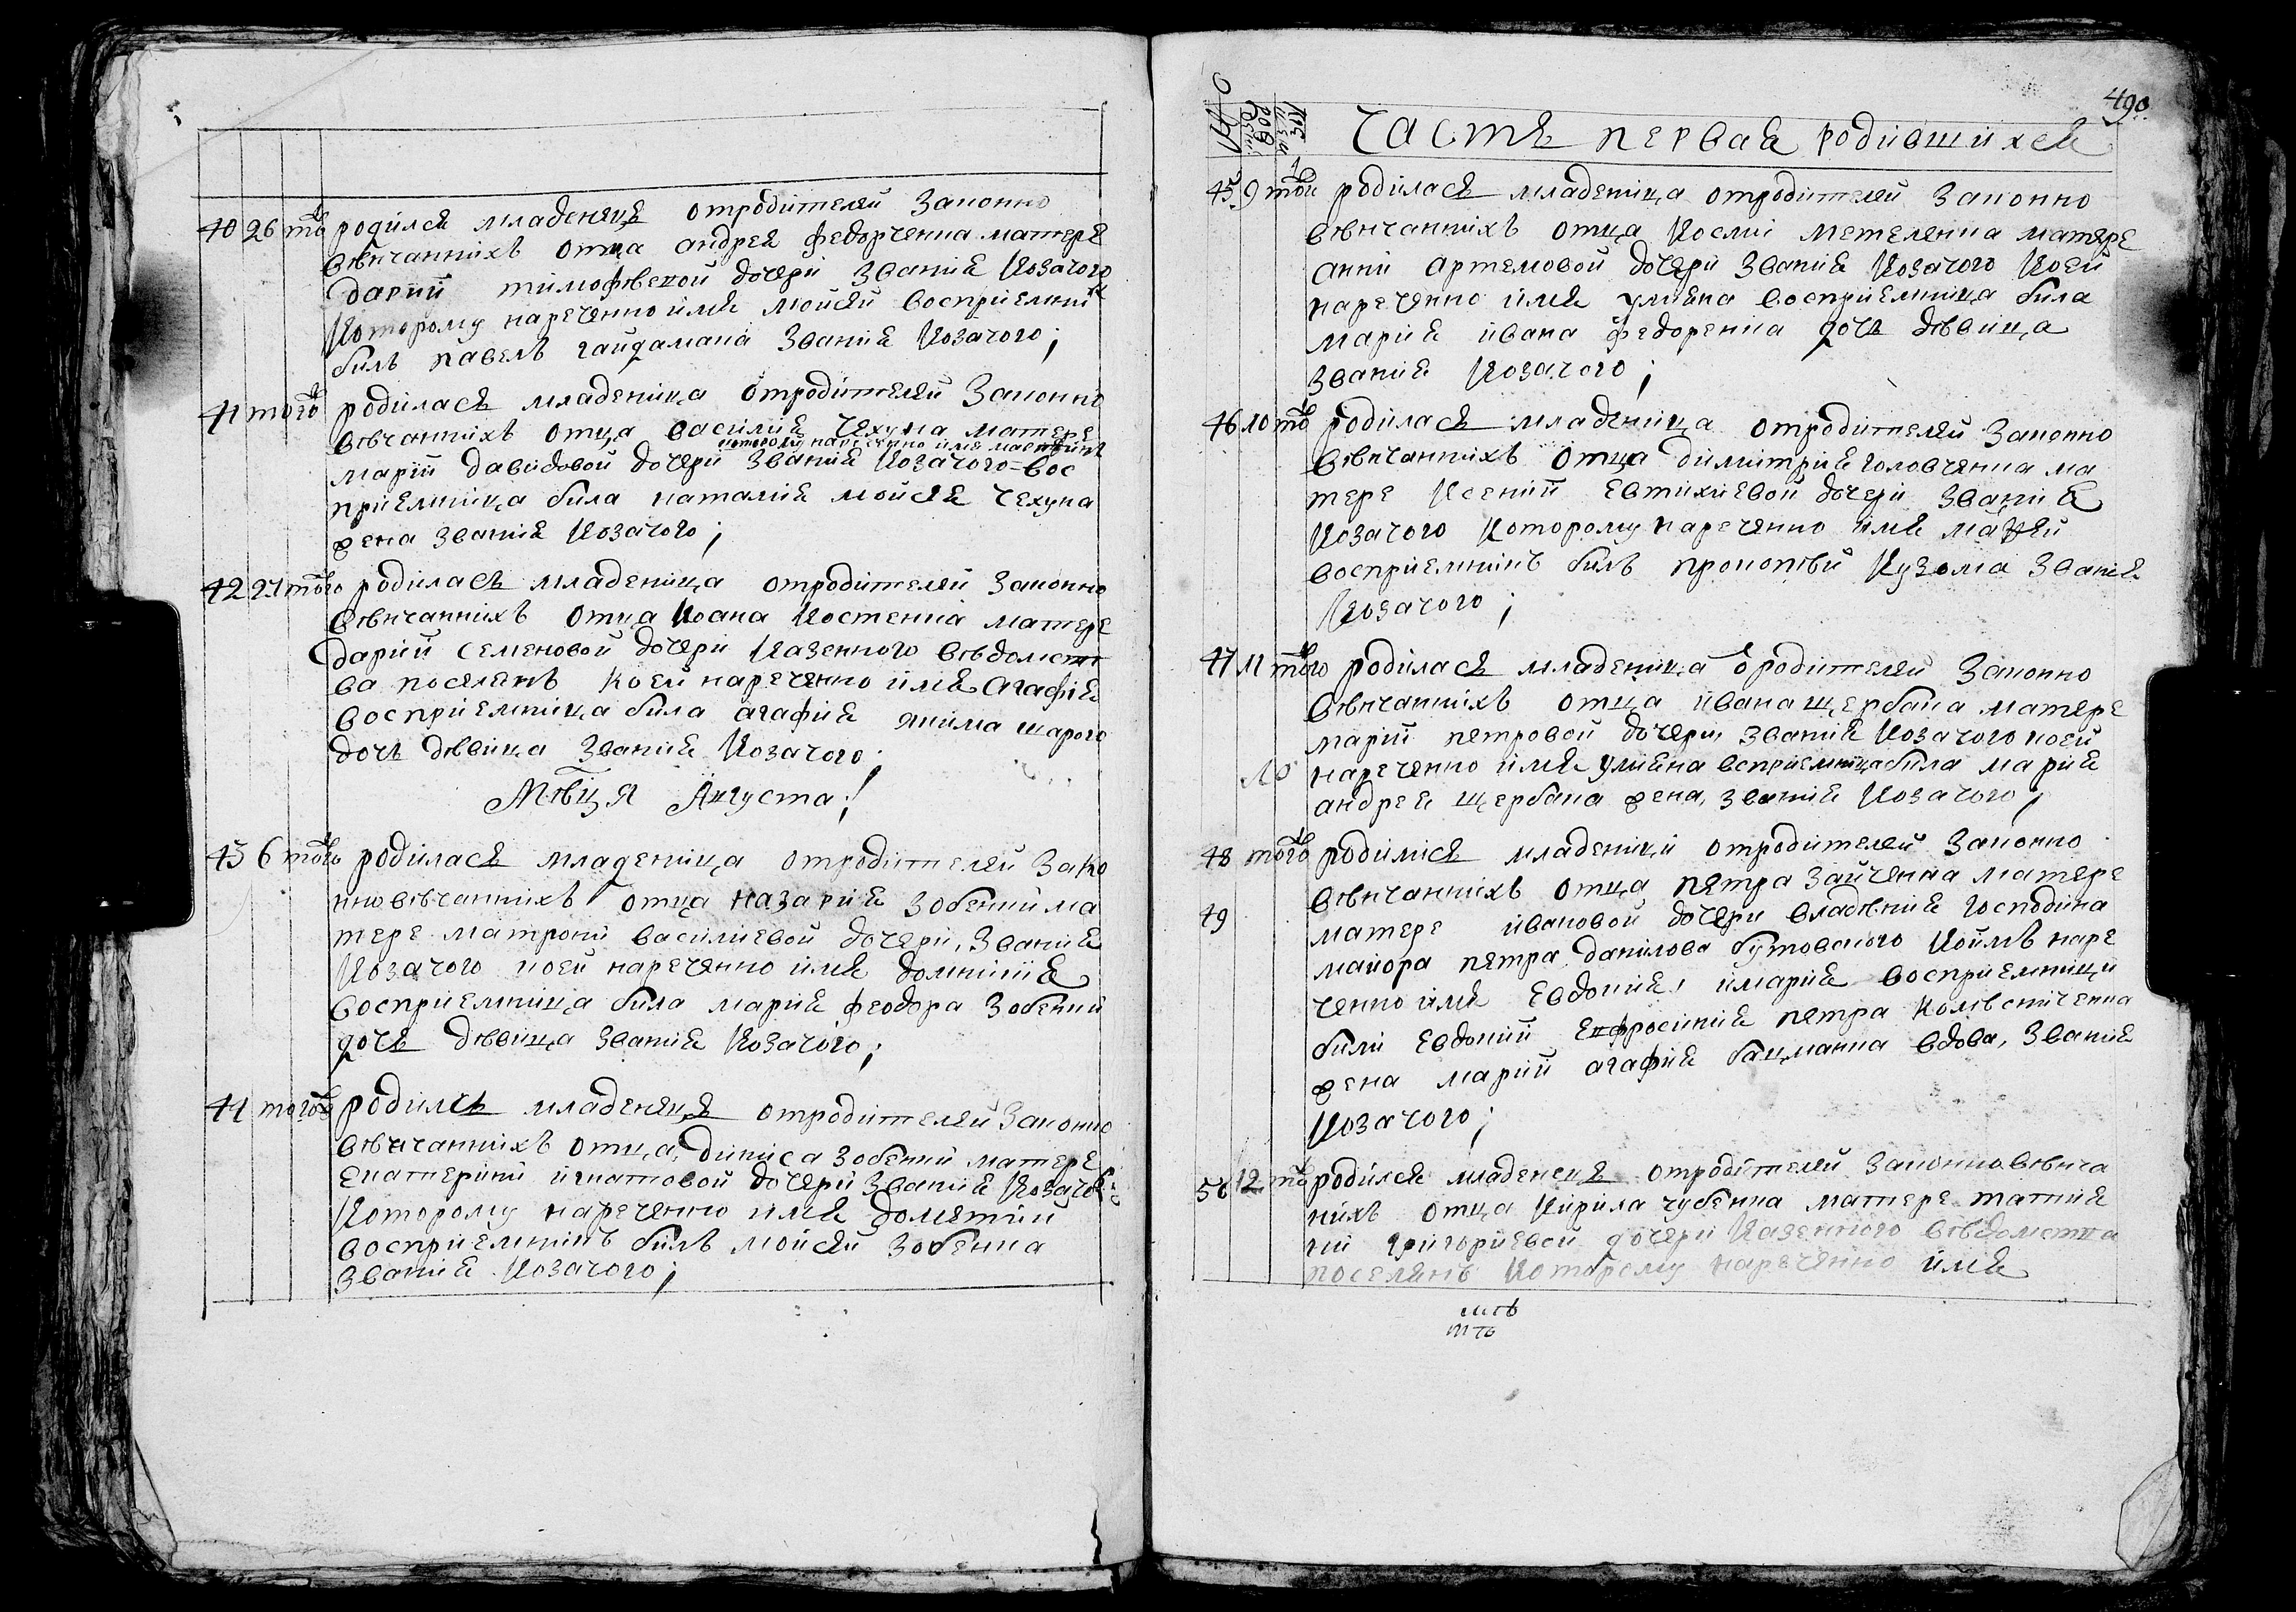 40 26 той родился младенецъ отродителей законно
вѣнчанныхъ отца андрея федорченка матере
дарии тимофѣевой дочери звания козачого
которому нареченно имя мойсей восприемник
билъ павелъ гайдамака звания козачого;
41 того родилася младеница отродителей законно
вѣнчанныхъ отца василия чехуна матере
которому нареченно имя
марии давидовой дочери звания козачого вос
приемница била наталия мойсея чехуна
жена звания козачого;
42 27 того родилась младеница отродителей законно
вѣнчанныхъ отца иоана костенка матере
дарии семеновой дочери казенного вѣдомст
ва поселянъ коей нареченно имя агафия
восприемница била агафия якима шарого
дочь дѣвица звания козачого;
Мѣсця Августа;
43 6 того родилася младеница отродителей зако
нно вѣнчанныхъ отца назария зобенки ма
тере матрони василиевой дочери, звания
козачого коей нареченно имя домникия
восприемница била мария феодора зобенки
дочь дѣвица звания козачого;
44 того родилсь младенецъ отродителей законно
вѣнчанныхъ отца, диниса зобенки матере
екатерини игнатовой дочери звания козачо
которому нареченно имя дометий
восприемникъ билъ мойсей зобенка
звания козачого;
490.
Часть первая родившихся
45 9 той родилася младеница отродителей законно
вѣнчанныхъ отца космы метеленка матере
анни артемовой дочери звания козачого коей
нареченно имя улияна восприемница била
мария ивана федоренка дочь дѣвица
звания козачого;
46 10 той родилася младеница отродителей законно
вѣнчанныхъ отца димитрия головченка ма
тере ксении евтихиевой дочери звания
козачого которому нареченно имя
восприемникъ билъ прокопѣй кузома звания
козачого;
47 11 того родилася младеница о родителей законно
вѣнчанныхъ отца ивана щербака матере
марии петровой дочери, звания козачого коей
10 нареченно имя улияна всприемница била мария
андрея щербака жена, звания козачого;
48 того родилися младеници отродителей законно
вѣнчанныхъ отца петра зайченка матере
49 матере ивановой дочери владѣния господина
майора петра данилова бутовского коимъ наре
ченно имя евдокия, имария восприемници
били евдокии ефросиния петра колѣсниченка
жена марии агафия бацманка вдова, звания
козачого;
50 12 той родился младенецъ отродителей законно вѣнча
нихъ отца кирила чубенка матере татия
ни григориевой дочери казенного вѣдомства
поселянъ которому нареченно имя